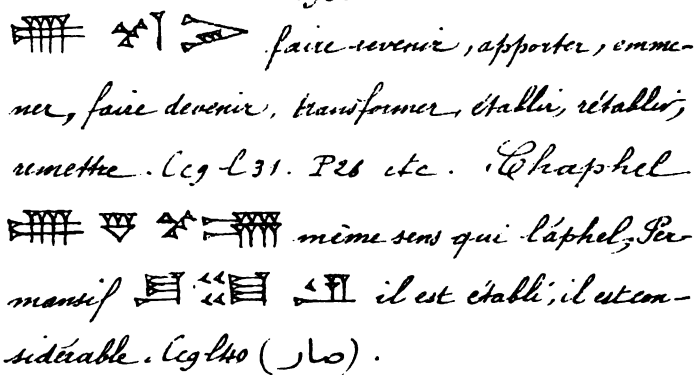 faire revenir, apporter, emme-
ner, faire devenir, transformer, établir, rétablir,
remettre. Ccg l 31. P 26 etc. Chaphel
même sens qui l'áphel, Per-
mansif il est établi, il est con-
sidérable. Ccg l 40 (صار).